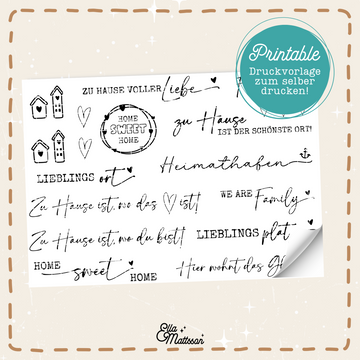 Printable
Druckvorlage
zum selber
drucken!
ZU HAUSE VOLLER Liebe
HOME
SWEET
HOME
zu Hause
IST DER SCHÖNSTE ORT!
Heimathafen
LIEBLINGS ort
WE ARE Family
Zu Hause ist, wo das ist!
Zu Hause ist, wo du bist!
LIEBLINGS plat
HOME sweet HOME
Hier wohnt das
Ella
Mattsson